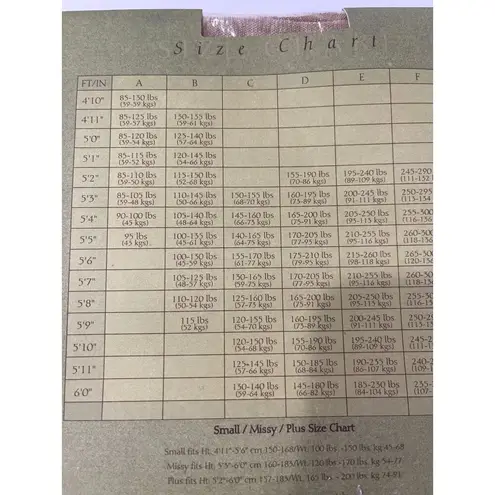 Size Chart
FT/IN A B C D E F
4'10" 85-130 lbs
(59-59 kgs)
4'11" 85-125 lbs 130-135 lbs
(59-57 kgs) (59-61 kgs)
5'0" 85-120 lbs 125-140 lbs
(59-54 kgs) (57-64 kgs)
5'1" 85-115 lbs 120-145 lbs
(59-52 kgs) (54-66 kgs)
5'2" 85-110 lbs 115-150 lbs 155-190 lbs 195-240 lbs 245-290
(59-50 kgs) (52-68 kgs) (70-86 kgs) (89-109 kgs) (111-132
5'3" 85-105 lbs 110-145 lbs 150-155 lbs 160-195 lbs 200-245 lbs 250-295
(59-48 kgs) (50-66 kgs) (68-70 kgs) (75-89 kgs) (91-111 kgs) (113-134
5'4" 90-100 lbs 105-140 lbs 145-160 lbs 165-200 lbs 205-250 lbs 255-300
(45 kgs) (48-64 kgs) (66-75 kgs) (75-91 kgs) (95-113 kgs) (116-136
5'5" 95 lbs 100-135 lbs 140-165 lbs 170-205 lbs 210-255 lbs 260-300
(43 kgs) (45-61 kgs) (64-75 kgs) (77-93 kgs) (95-116 kgs) (118-136
5'6" 100-130 lbs 135-170 lbs 175-210 lbs 215-260 lbs 265-300
(45-59 kgs) (61-77 kgs) (79-95 kgs) (98-118 kgs) (120-136
5'7" 105-125 lbs 130-165 lbs 170-205 lbs 210-255 lbs 260-
(48-57 kgs) (59-75 kgs) (77-93 kgs) (95-116 kgs) (118-
5'8" 110-120 lbs 125-160 lbs 165-200 lbs 205-250 lbs 255-
(50-54 kgs) (57-75 kgs) (75-91 kgs) (95-113 kgs) (115-
5'9" 115 lbs 120-155 lbs 160-195 lbs 200-245 lbs 250-
(52 kgs) (54-70 kgs) (75-89 kgs) (91-111 kgs) (113-
5'10" 120-150 lbs 155-190 lbs 195-240 lbs 245-
(54-68 kgs) (70-86 kgs) (89-109 kgs) (111-
5'11" 125-145 lbs 150-185 lbs 190-235 lbs 240-
(57-66 kgs) (68-84 kgs) (86-107 kgs)
6'0" 130-140 lbs 145-180 lbs 185-230 lbs
(59-64 kgs) (66-82 kgs) (84-104 kgs)
Small / Missy / Plus Size Chart
Small fits Ht. 4'11"-5'6" cm 150-168/Wt. 100 lbs. -150 lbs. kg 45-68
Missy fits Ht. 5'3"-6'0" cm 160-183/Wt. 120 lbs -170 lbs. kg 54-77
Plus fits Ht. 5'2"-6'0" cm 157-183/Wt. 165 lbs - 200 lbs. kg 74-91